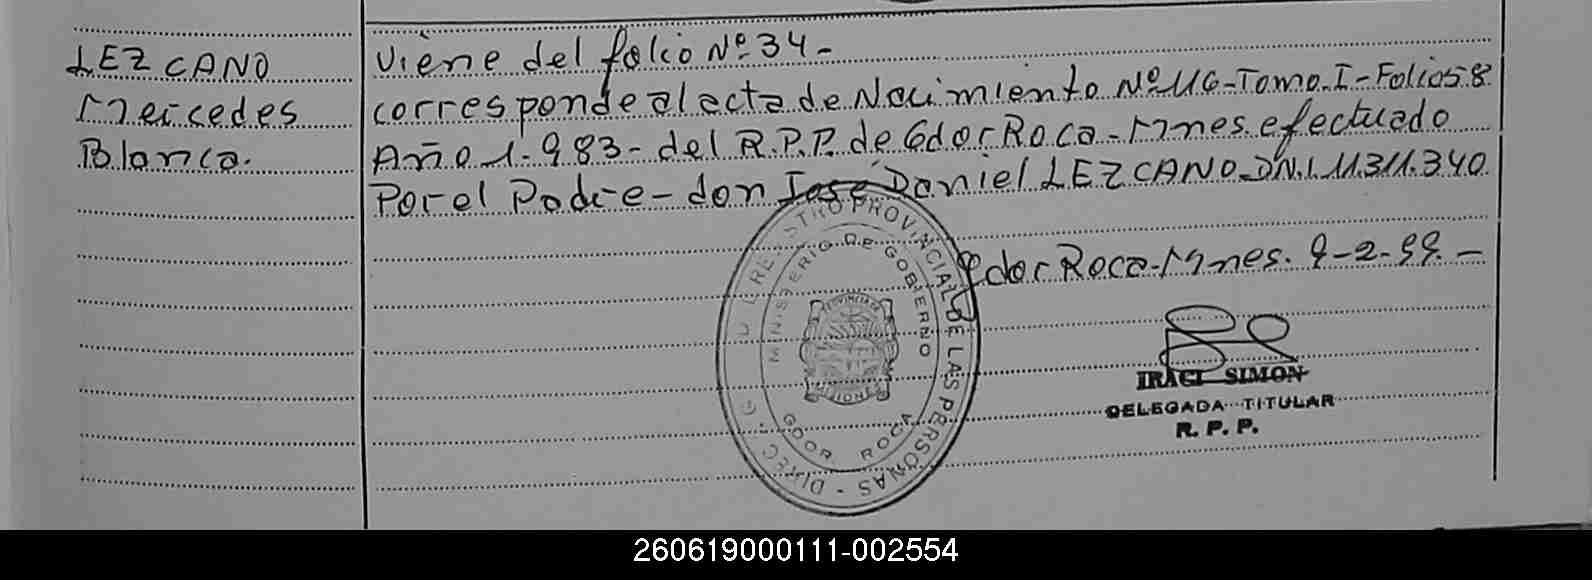 LEZCANO
Mercedes
Blanca.
Viene del folio Nº 34-
corresponde al acta de Nacimiento Nº 116-Tomo.I-Folios 58
Año 1.983- del R.P.P. de Gdor Roca-Mnes. efectuado
Por el Padre- don José Daniel LEZCANO. DN.I. 11.311.340
Gdor Roca-Mnes. 9-2-99.-
REGISTRO PROVINCIAL DE LAS PERSONAS -
MINISTERIO DE GOBIERNO
PROVINCIA DE
MISIONES
GDOR. ROCA
IRACI SIMON
DELEGADA TITULAR
R. P. P.
260619000111-002554